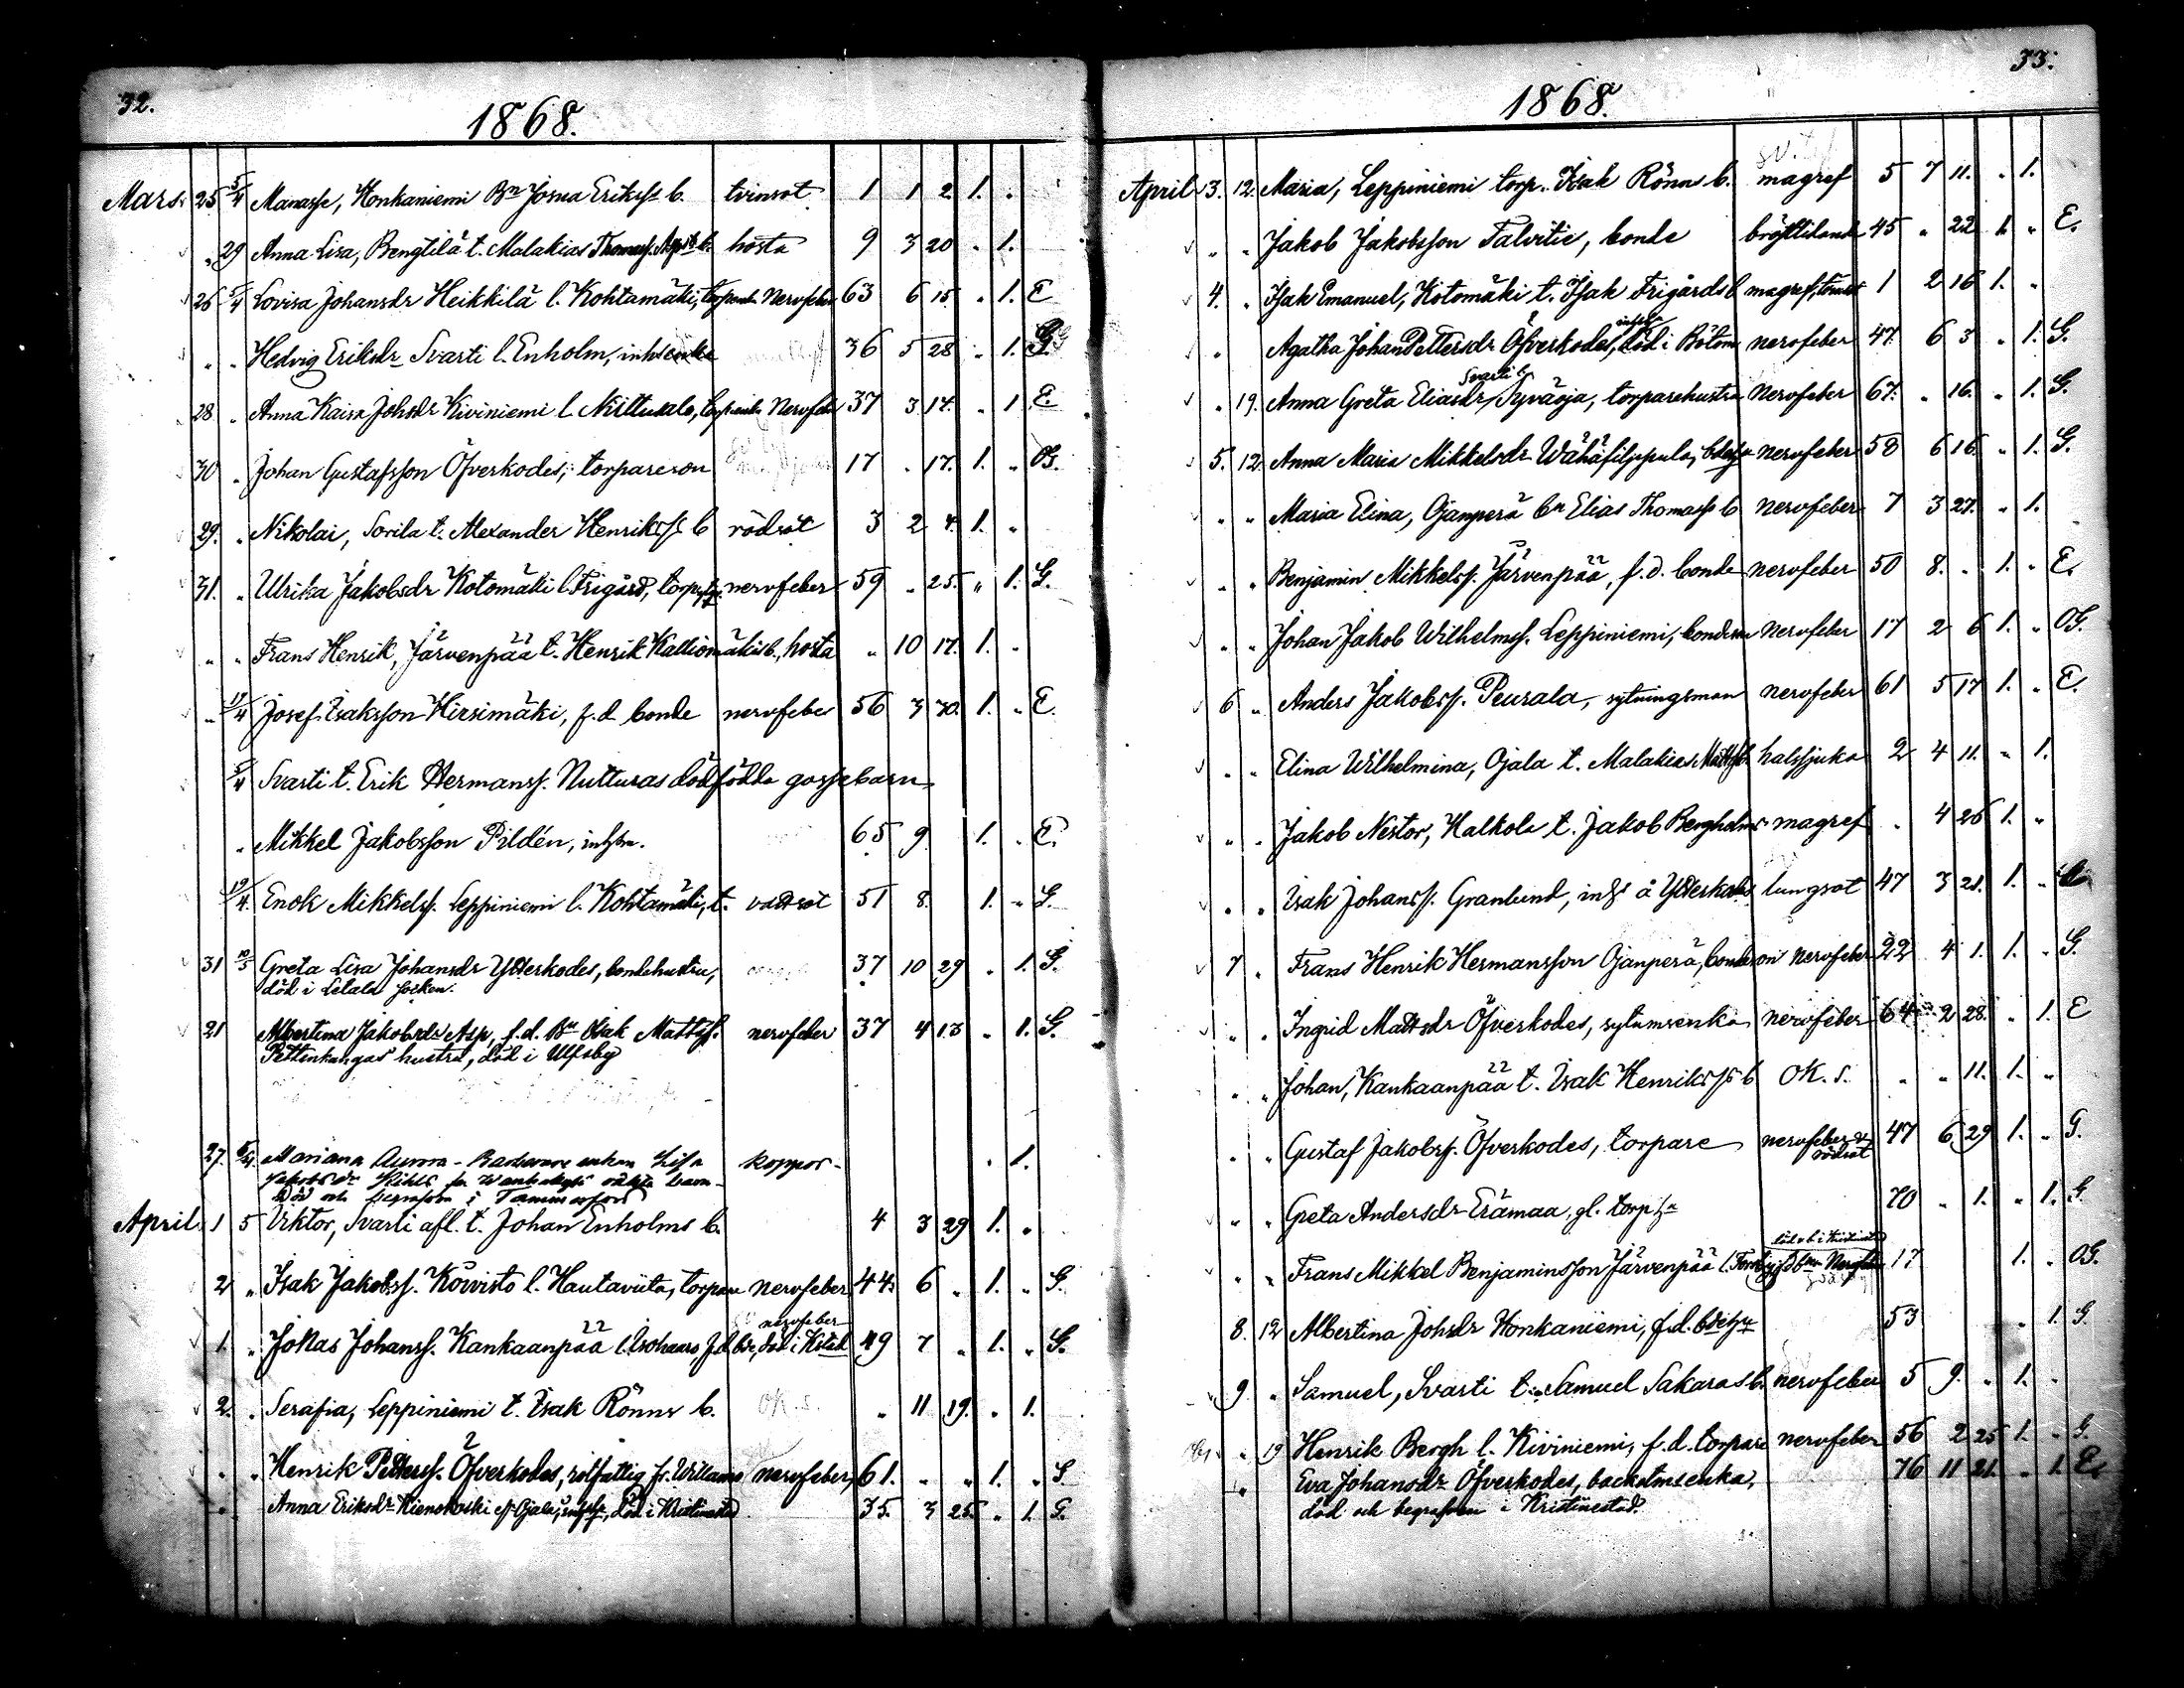 32.
1868.
Mars. 25 5/4 Manasse, Honkaniemi Bn Josua Erikss. b. tvinsot. 1 1 2. 1. "
" 29 Anna Lisa, Bengtilä t. Malakias Thomass. b. hosta 9 3 20 " 1.
26 5/4 Lovisa Johansdr Heikkilä l. Kohtamäki, Nervfeber 63 6 15 " 1. E
" " Hedvig Eriksdr Svarti l. Enholm, inhsenka 36 5 28 " 1. G.
28 " Anna Kaisa Johsdr Kiviniemi l. Nervfeber 37 3 14. " 1 E
30 " Johan Gustafsson Öfverkodes, torpareson 17 " 17. 1. " OG.
29. " Nikolai, Sorila t. Alexander Henrikss. b rödsot 3 2 4. 1. "
31. " Ulrika Jakobsdr Kotomäki l. Frigård, nervfeber 59 " 25. " 1. G.
" " Frans Henrik, Järvenpää t. Henrik Kalliomäkis b., hosta " 10 17. 1. "
" 19/4 Josef Isaksson Hirsimäki, f.d. bonde nervfeber 56 3 30. 1. " E.
5/4 Svarti t. Erik Hermanss. Nutturas dödfödda gossebarn
" Mikkel Jakobsson Pildén, inhs. 65 9 1. " E.
19/4. Enok Mikkelss. Leppiniemi l. Kohtamäki, t. vattsot 51 8. 1. " G.
31 Greta Lisa Johansdr Ytterkodes, bondehustru, 37 10 29 " 1. G.
död i Letala socken.
21 Albertina Jakobsdr Asp, f.d. Bn Isak Mattss. nervfeber 37 4 13 " 1. G.
Pettenkangas hustru, död i Ulfsby
27. 5/4. Mariana Aurora - enkan Lisa koppor - " 1.
Jakobsdr oäkta barn -
död och begrafven i Tammerfors
April. 1 5 Viktor, Svarti afl. t. Johan Enholms b. 4 3 29 1. "
2 " Isak Jakobss. Koivisto l. Hautaviita, torpare nervfeber 44. 6 " 1. " G.
nervfeber
1. " Jonas Johanss. Kankaanpää l. f.d. bde, död i Kstad 49 7 " 1. " G.
2. " Serafia, Leppiniemi t. Isak Rönns b. OK. s. " 11 19. " 1.
" " Henrik Petterss. Öfverkodes, nervfeber 61. " " 1. " G
" Anna Eriksdr död i Kristinestad 35. 3 25. " 1. G.
33.
1868.
April 3. 12. Maria, Leppiniemi torp. Isak Rönns b. magref 5 7 11. " 1.
" " Jakob Jakobsson Talvitie, bonde bröstlidande 45 " 22 1. " E.
4. " Isak Emanuel, Kotomäki t. Isak Frigårds b magref, 1 2 16 1. "
" Agatha Johan Pettersdr Öfverkodes, död i Bötom nervfeber 47. 6 3 " 1. G.
Svarti l.
" 19. Anna Greta Eliasdr Syväoja, torparehustru Nervfeber 67. " 16. " 1. G.
5. 12 Anna Maria Mikkelsdr Wähäfilppula, nervfeber 58 6 16. " 1. G.
" " Maria Elina, Ojanperä bn Elias Thomass b nervfeber 7 3 27. " 1.
" " Benjamin Mikkelss. Järvenpää, f.d. bonde nervfeber 50 8. " 1. " E.
" " Johan Jakob Wilhelmss. Leppiniemi, bondeson nervfeber 17 2 6 1. " OG.
6 " Anders Jakobss. Peurala, sytningsman nervfeber 61 5 17 1. " E.
" " Elina Wilhelmina, Ojala t. Malakias Mattss. b. halssjuka 2 4 11. " 1.
" " Jakob Nestor, Halkola t. Jakob Bergholms magref " 4 26 1. "
" " Isak Johanss. Granlund, inhs å Ytterkodes lungsot 47 3 21. 1. "
7 " Frans Henrik Hermansson Ojanperä, bondeson nervfeber 22 4 1. 1. " G.
" " Ingrid Mattsdr Öfverkodes, sytnmsenka nervfeber 64 2 28. " 1. E
" " Johan, Kankaanpää t. Isak Henrikss b OK. s. " " 11. 1. "
" " Gustaf Jakobss. Öfverkodes, torpare nervfeber & 47 6 29 1. " G.
rödsot
" " Greta Andersdr Erämaa, gl. torp 70 " 1. " 1. G
" " Frans Mikkel Benjaminsson Järvenpää Nervfeber 17 1. " OG.
8. 12 Albertina Johsdr Honkaniemi, f.d. 53 " 1. G
9. " Samuel, Svarti t. Samuel Sakaras b. nervfeber 5 9. " 1. "
" 19 Henrik Bergh l. Kiviniemi, f.d. torpare nervfeber 56 2 25 1. " G.
" Eva Johansdr Öfverkodes, backstmsenka, 76 11 21. " 1. E.
död och begrafven i Kristinestad.